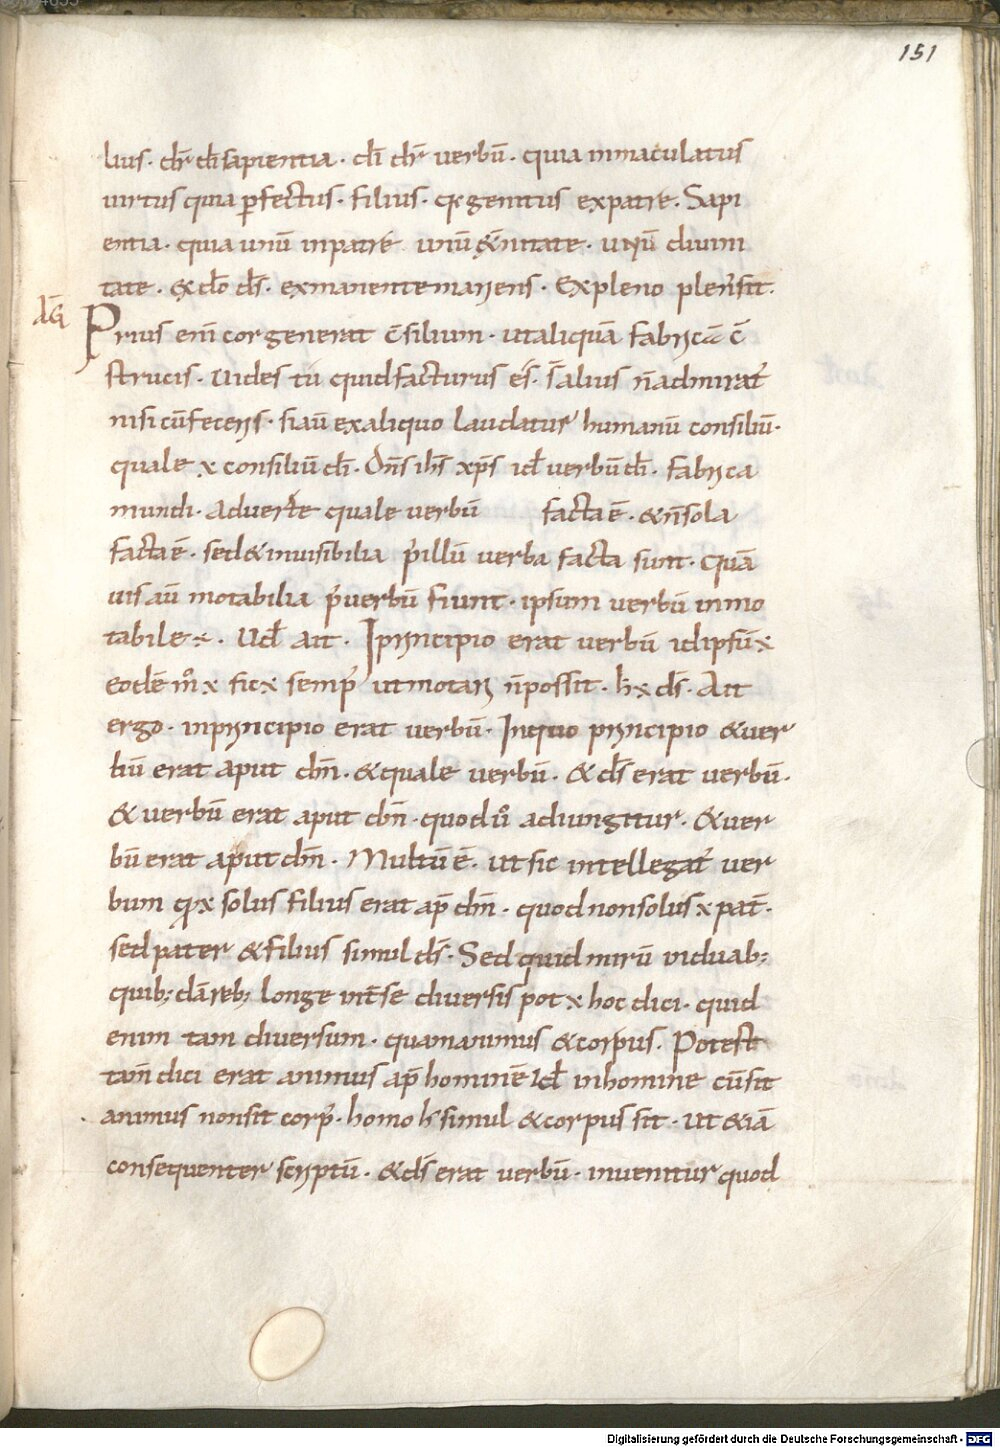 151
lius · dī dī sapientia · dī dī verbū · quia inmaculatus
uirtus quia pfectus · filius · qa genitus ex patre · Sapi
entia · quia unū in patre unū &nitate · unū diuini
tate · & dō ds · ex manente manens · Ex pleno
AG
Prius enī cor generat c̄silium · ut aliquā fabricā c̄
strucis · Uides tu quid facturus es · alius n̄ admirat
nisi cū feceris · si aū ex aliquo laudatur humanū consiliū ·
quale ÷ consiliū dī · Dn̄s ihs xp̄s id verbū dī · fabrica
mundi · Aduerte quale verbū facta ē · & n̄ sola
facta ē · sed & inuisibilia p illū verba facta sunt · quā
uis aū motabilia p verbū fiunt · ipsum verbū inmo
tabile ÷ · Ud ait · I principio erat verbū id ipsū ÷
eodē m° ÷ sic ÷ semp ut motari n̄ possit · h ÷ ds · Ait
ergo · in principio erat verbū · In quo principio & ver
bū erat aput dm̄ · & quale verbū · & ds erat verbū ·
& verbū erat aput dm̄ · quod ů adiungitur · & ver
bū erat aput dm̄ · Multū ē · ut sic intellegat ver
bum solus filius erat ap̄ dm̄ · quod non solus ÷ pat̄ ·
sed pater & filius simul ds · Sed quid mirū
quib; longe int̄ se diuersis pot ÷ hoc dici · quid
enim tam diuersum · quam animus & corpus · Potest
tam̄ dici erat animus ap̄ hominē id in homine cū sit
animus non sit corp · homo simul & corpus sit · ut &iā
consequenter scriptū · & ds erat verbū · inuenitur quod
Digitalisierung gefördert durch die Deutsche Forschungsgemeinschaft - DFG